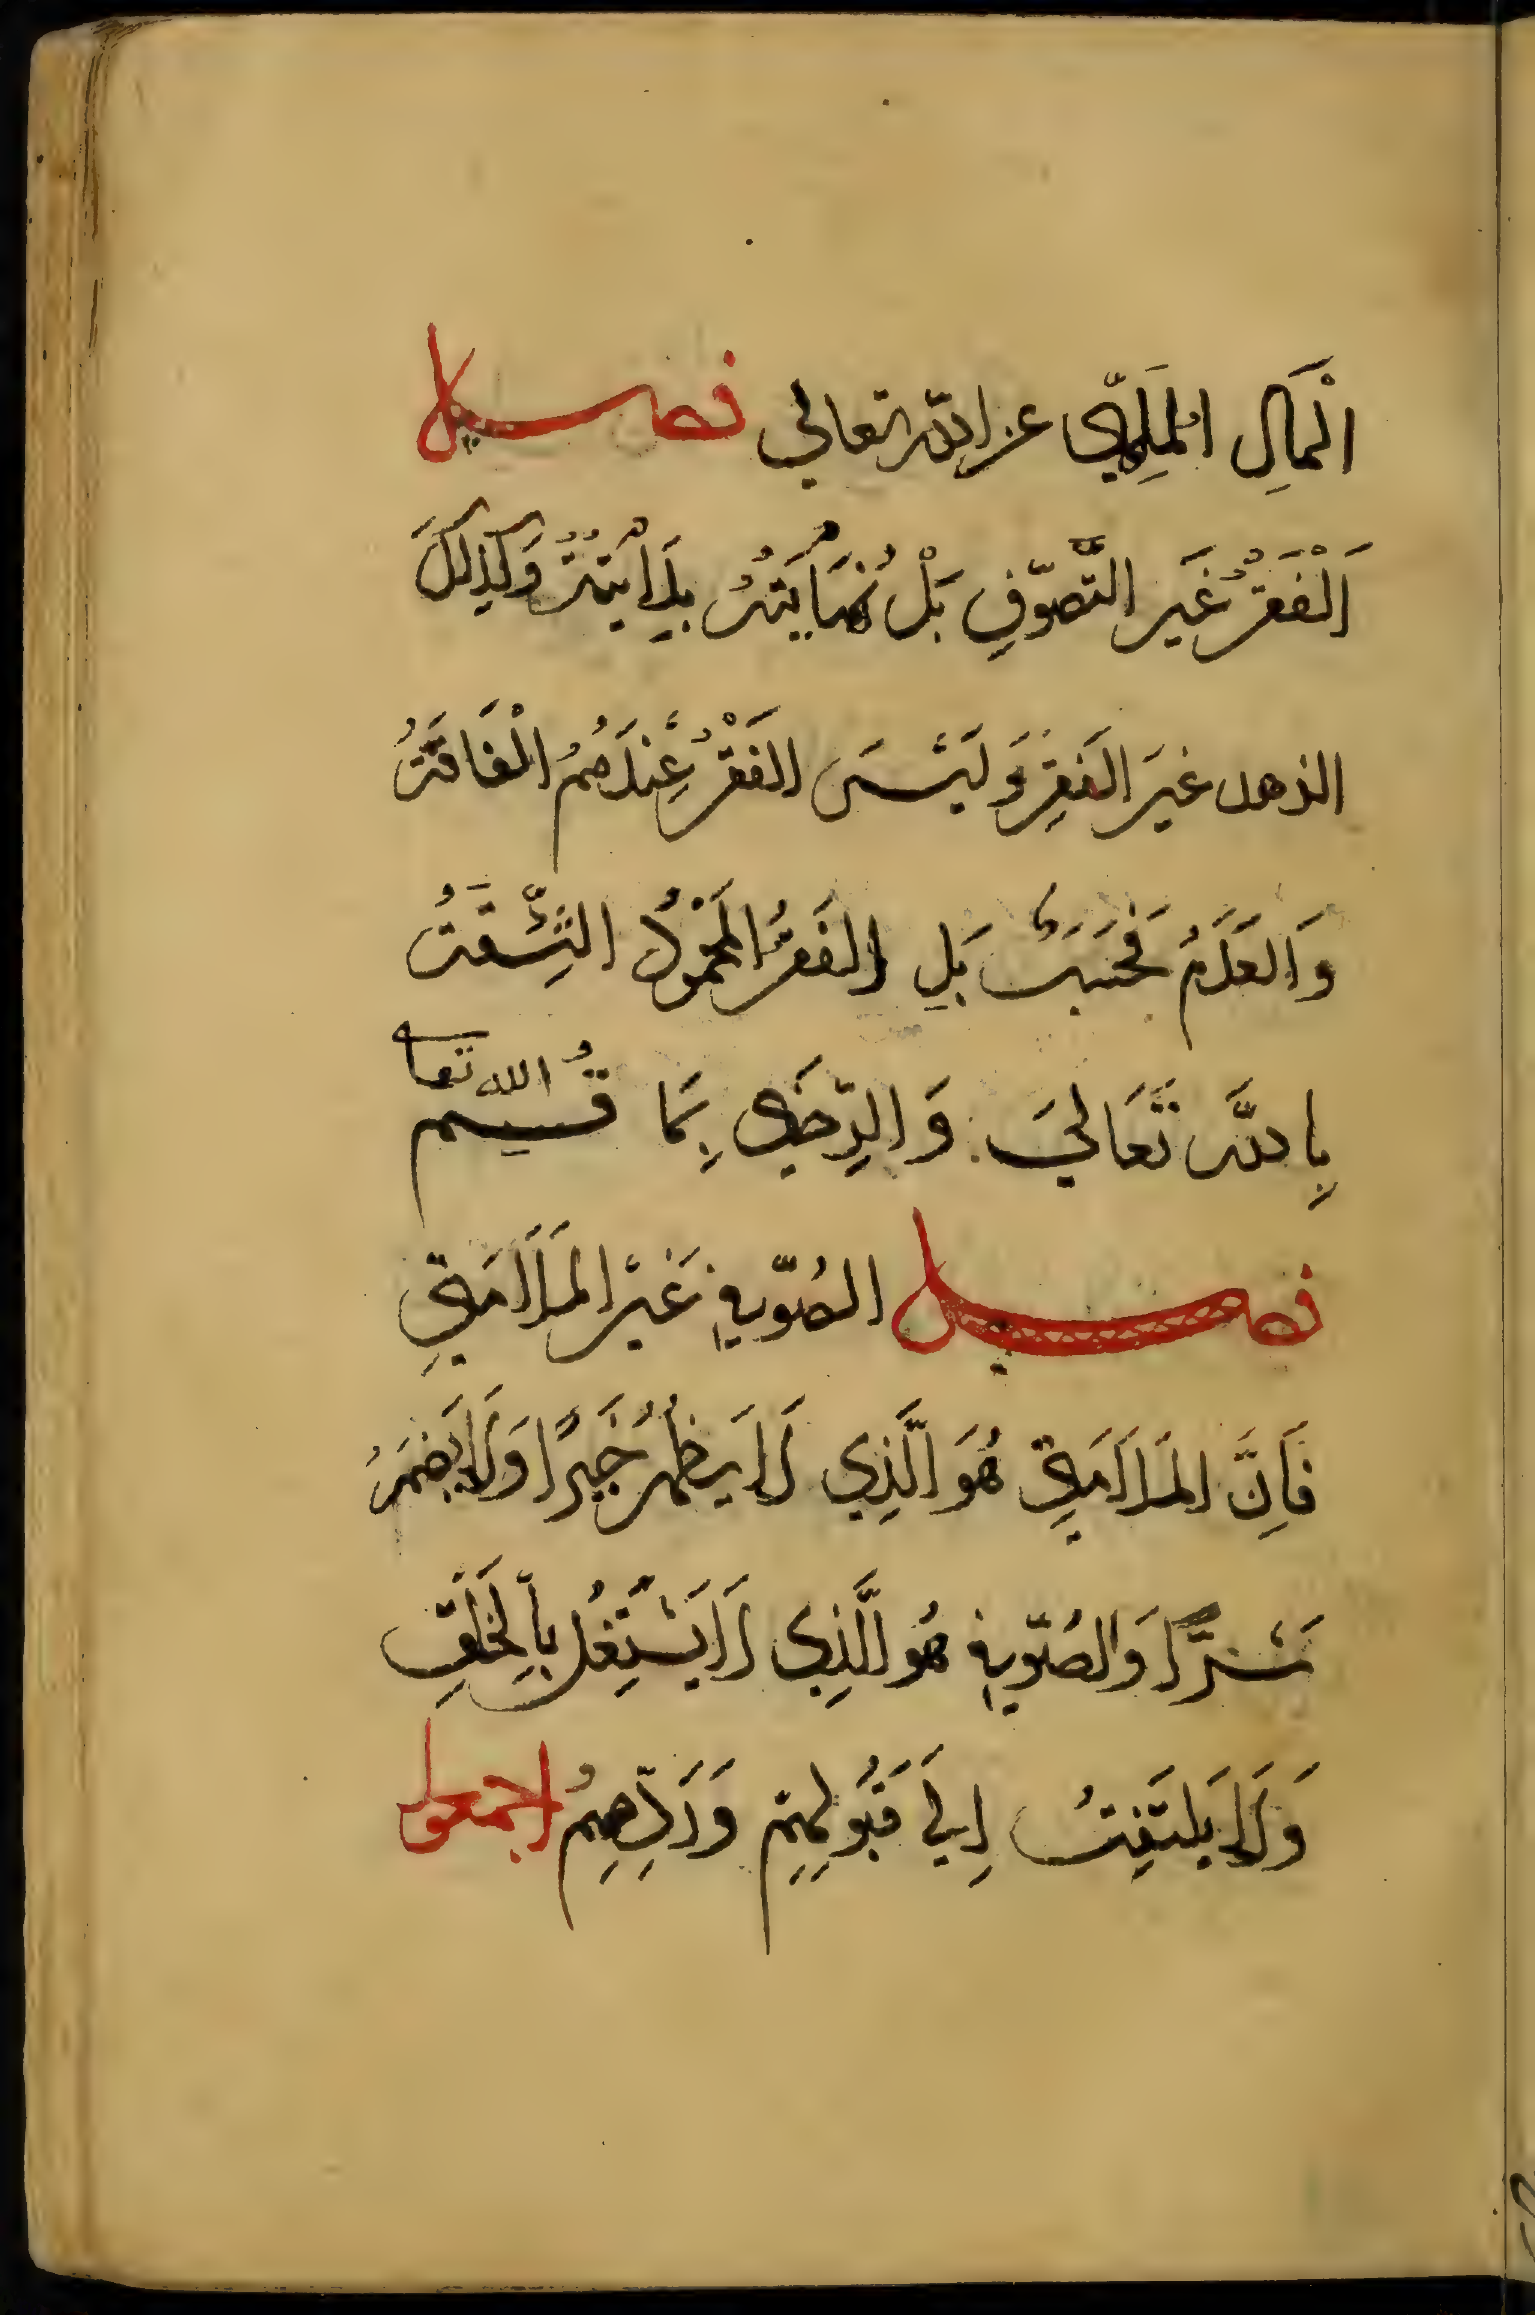 الْمَالِ المُلِهي عن الله تعالى فصل
اَلْفَقْرُ غَير التَّصوّفِ بَلْ نُهَايَتُهُ بِدايَتُهُ وَكَذلِكَ
الزهد غيرَ الفَقِر وَلَيْسَ الفَقْرُ عِنْدَهُمُ الْفَاقَةُ
وَالعَدَمُ فَحَسَبْ بَلِ الفَقرُ المَحْمُودُ الثِّقَةُ
بِاللهِ تَعَالىَ وَالرِّضَى بِمَا قُسِم الله تعا
فصل الصُوّفيِ غَيْرُ المَلَامَتِي
فَاِنَّ المَلَامَتِي هُوَ الَّذِي لَا يظهرُ خَيرًا وَلَا يَضمَرُ
شَرًّا وَالصُوّفيِ هُو الَّذِي لَا يَشْتِغُل بِاَلخَلْقِ
وَلَا يَلتَفِتُ اِلىَ قَبُولِهِمِ وَرَدِّهِمُ اجمعوا